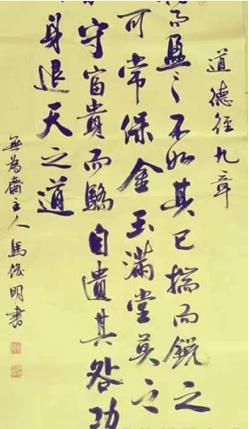 道德經九章
而盈之不如其已揣而銳之
可常保金玉滿堂莫之
守富貴而驕自遺其咎功
身退天之道
無為齋主人馬俊明書